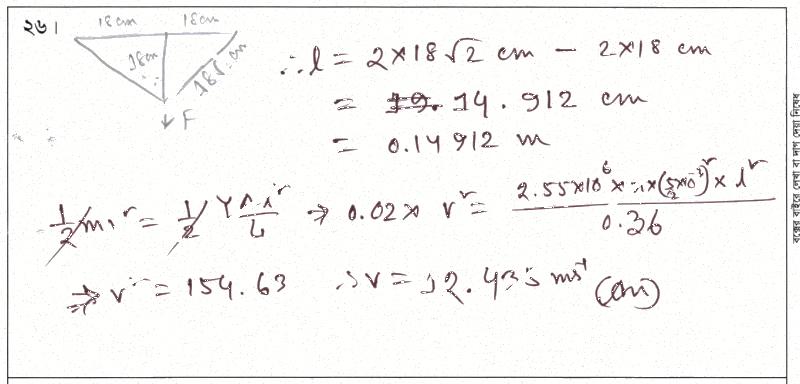 ২৬।
18 cm 18 cm
18 cm 18√2 cm
F
∴ l = 2×18√2 cm − 2×18 cm
= 14.912 cm
= 0.14912 m
½mv² = ½ YAl²/L ⇒ 0.02 × v² = 2.55×10⁶ × π×(5/2×10⁻³)² × l² / 0.36
⇒ v² = 154.63 ∴ v = 12.435 ms⁻¹ (Ans)
বক্সের বাইরে লেখা বা দাগ দেয়া নিষেধ